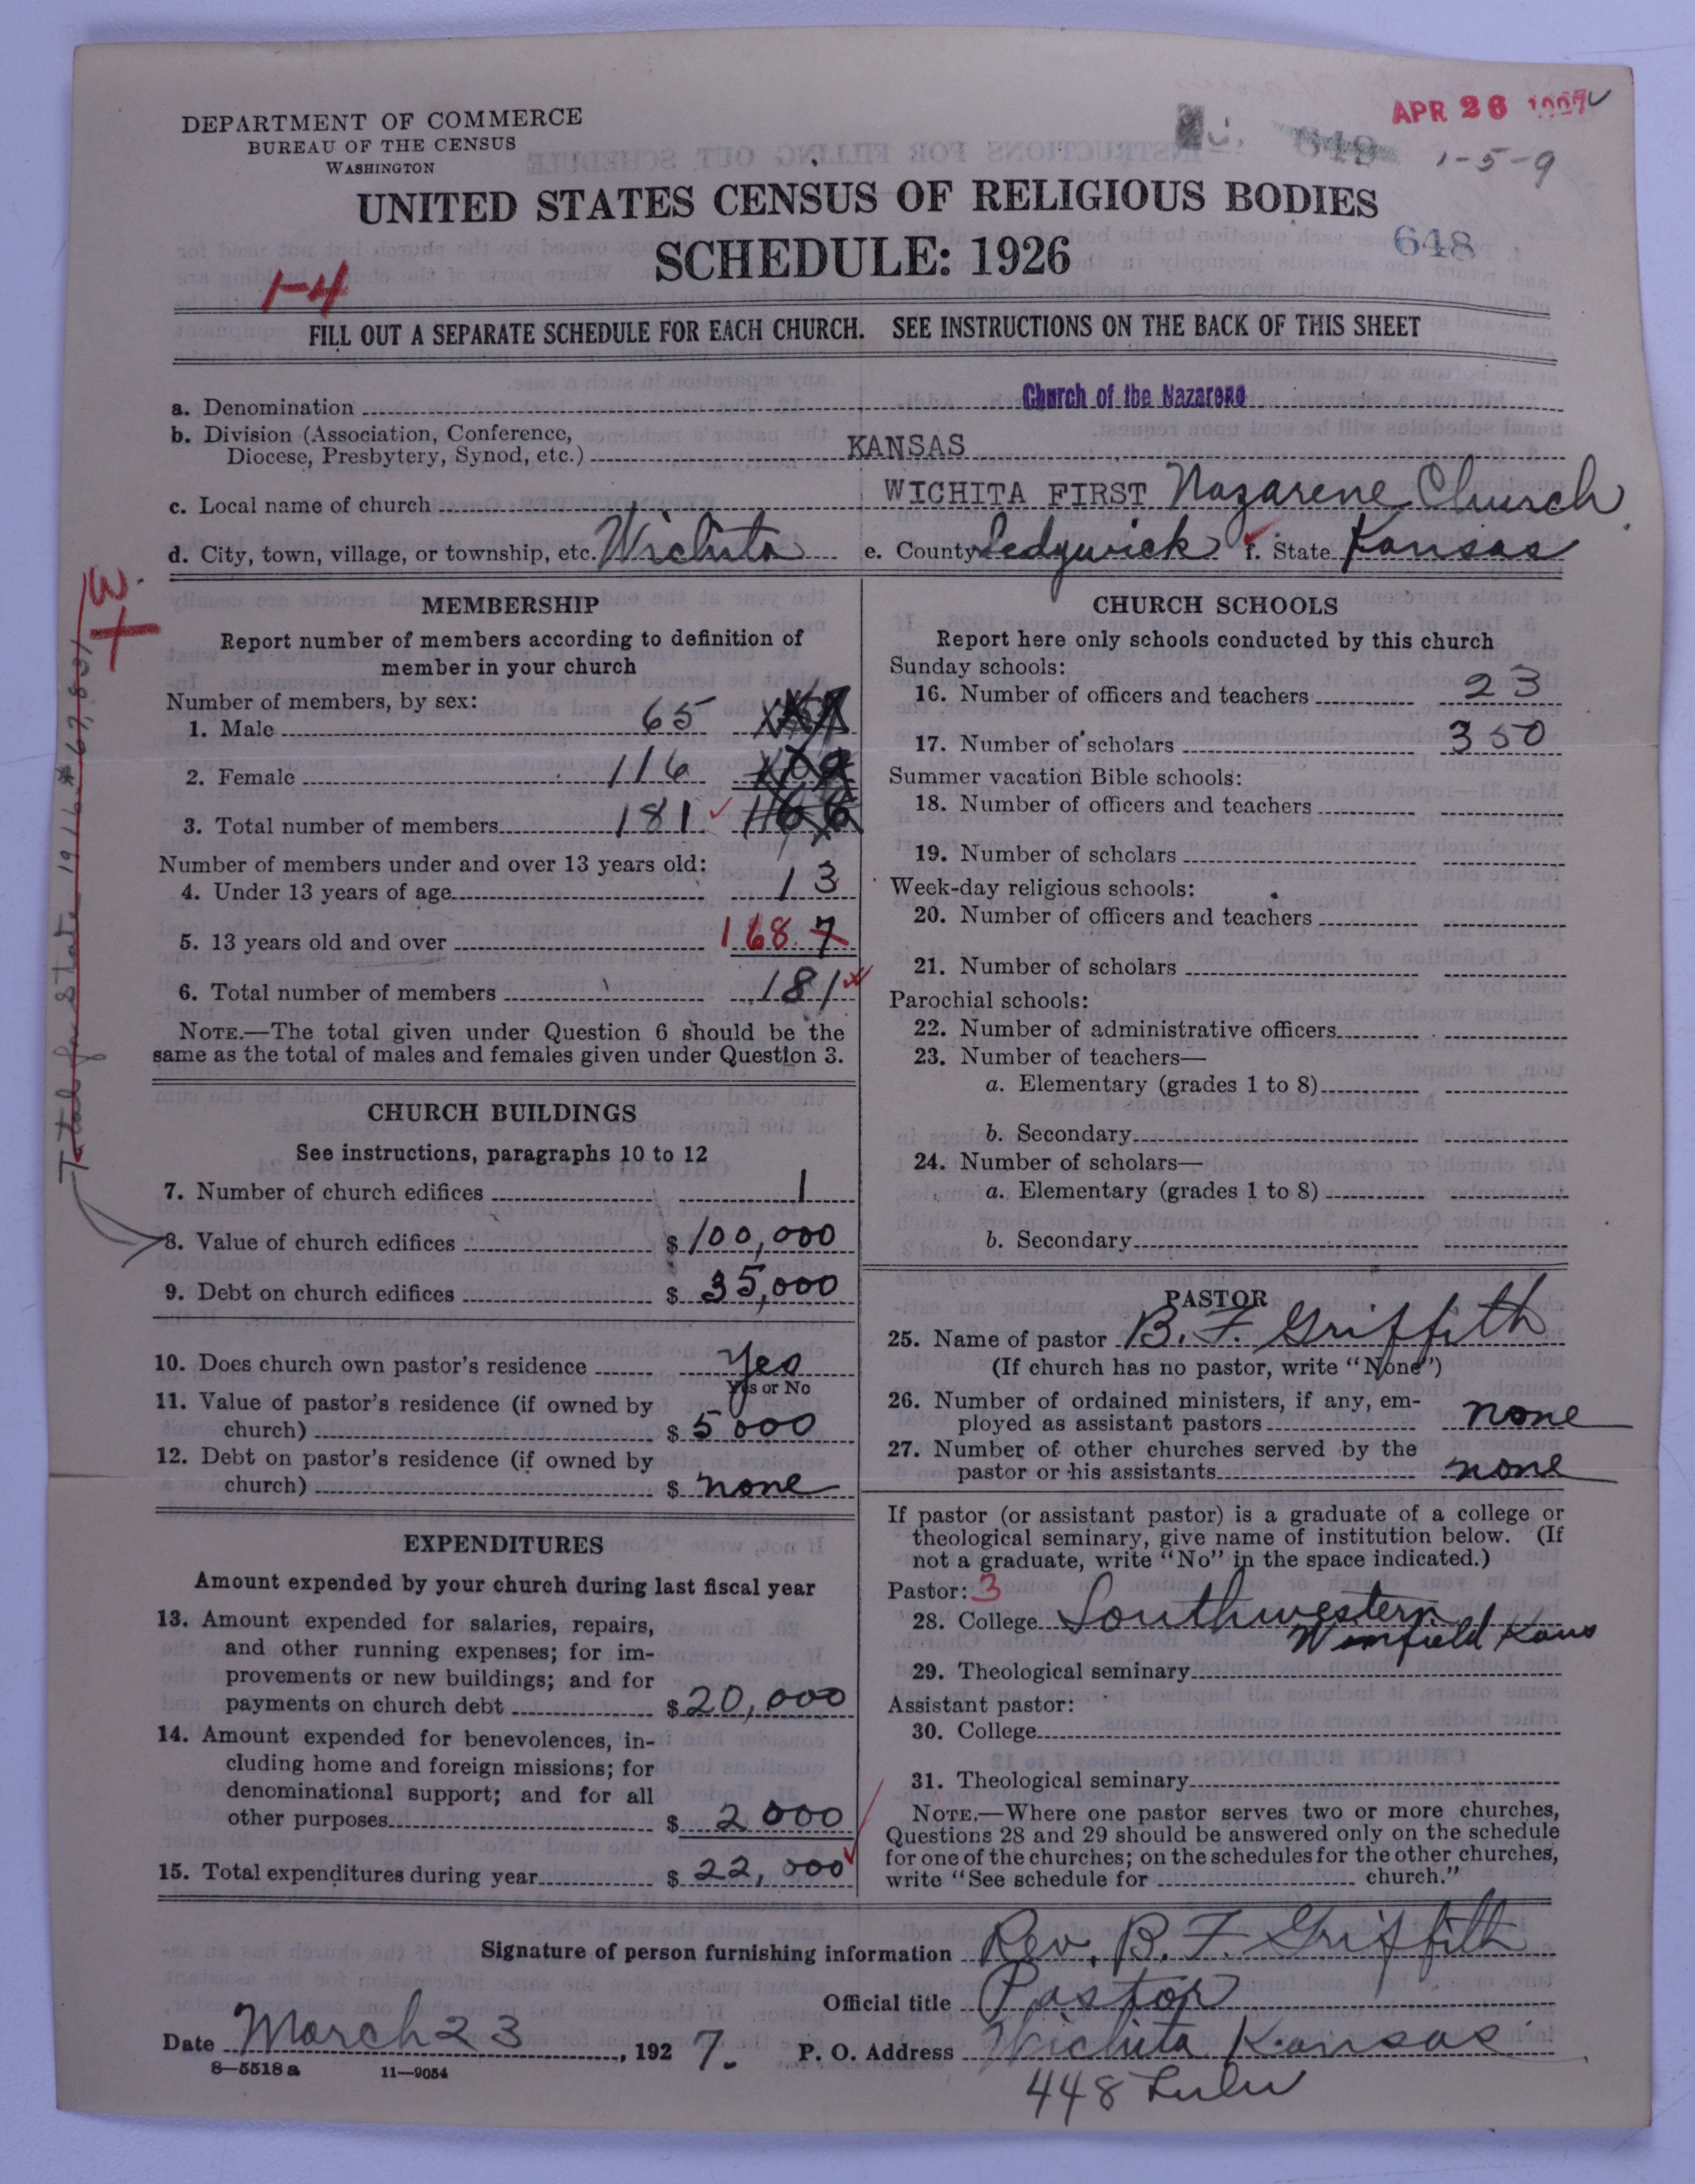 APR 26
1-5-9
DEPARTMENT OF COMMERCE
BUREAU OF THE CENSUS
WASHINGTON
UNITED STATES CENSUS OF RELIGIOUS BODIES
SCHEDULE: 1926
648
1-4
FILL OUT A SEPARATE SCHEDULE FOR EACH CHURCH. SEE INSTRUCTIONS ON THE BACK OF THIS SHEET
a. Denomination Church of the Nazarene
b. Division (Association, Conference,
Diocese, Presbytery, Synod, etc.) KANSAS
c. Local name of church WICHITA FIRST Nazarene Church
d. City, town, village, or township, etc. Wichita e. County Sedgwick f. State Kansas
W.
Total for State 1916
MEMBERSHIP
Report number of members according to definition of
member in your church
Number of members, by sex:
1. Male 65
2. Female 116
3. Total number of members 181 166
Number of members under and over 13 years old:
4. Under 13 years of age 13
5. 13 years old and over 168 7
6. Total number of members 181
NOTE.—The total given under Question 6 should be the
same as the total of males and females given under Question 3.
CHURCH BUILDINGS
See instructions, paragraphs 10 to 12
7. Number of church edifices 1
8. Value of church edifices $ 100,000
9. Debt on church edifices $ 35,000
10. Does church own pastor's residence Yes
Yes or No
11. Value of pastor's residence (if owned by
church) $ 5000
12. Debt on pastor's residence (if owned by
church) $ none
EXPENDITURES
Amount expended by your church during last fiscal year
13. Amount expended for salaries, repairs,
and other running expenses; for im-
provements or new buildings; and for
payments on church debt $ 20,000
14. Amount expended for benevolences, in-
cluding home and foreign missions; for
denominational support; and for all
other purposes $ 2000
15. Total expenditures during year $ 22,000
CHURCH SCHOOLS
Report here only schools conducted by this church
Sunday schools:
16. Number of officers and teachers 23
17. Number of scholars 350
Summer vacation Bible schools:
18. Number of officers and teachers
19. Number of scholars
Week-day religious schools:
20. Number of officers and teachers
21. Number of scholars
Parochial schools:
22. Number of administrative officers
23. Number of teachers—
a. Elementary (grades 1 to 8)
b. Secondary
24. Number of scholars—
a. Elementary (grades 1 to 8)
b. Secondary
PASTOR
25. Name of pastor B. F. Griffith
(If church has no pastor, write "None")
26. Number of ordained ministers, if any, em-
ployed as assistant pastors none
27. Number of other churches served by the
pastor or his assistants none
If pastor (or assistant pastor) is a graduate of a college or
theological seminary, give name of institution below. (If
not a graduate, write "No" in the space indicated.)
Pastor: 3
28. College Southwestern
Winfield Kans
29. Theological seminary
Assistant pastor:
30. College
31. Theological seminary
NOTE.—Where one pastor serves two or more churches,
Questions 28 and 29 should be answered only on the schedule
for one of the churches; on the schedules for the other churches,
write "See schedule for church."
Signature of person furnishing information Rev. B. F. Griffith
Official title Pastor
Date March 23, 1927. P. O. Address Wichita Kansas
448 Lulu
8—5518a 11—9054